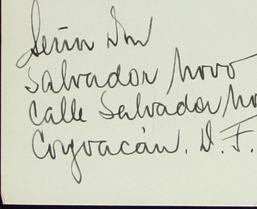 Señor Don
Salvador Novo
Calle Salvador No
Coyoacán. D. F.